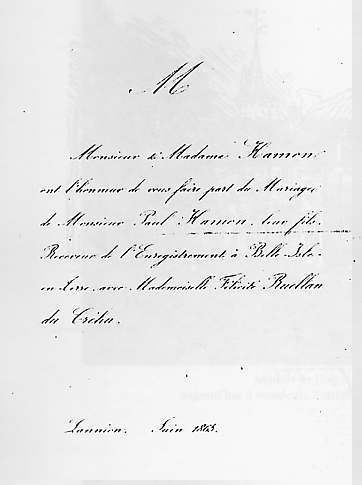 M
Monsieur & Madame Hamon
ont l'honneur de vous faire part du Mariage
de Monsieur Paul Hamon, leur fils,
Receveur de l'Enregistrement à Belle-Isle-
en-Terre, avec Mademoiselle Félicité Ruellan
du Créhu.
Lannion, Juin 1863.